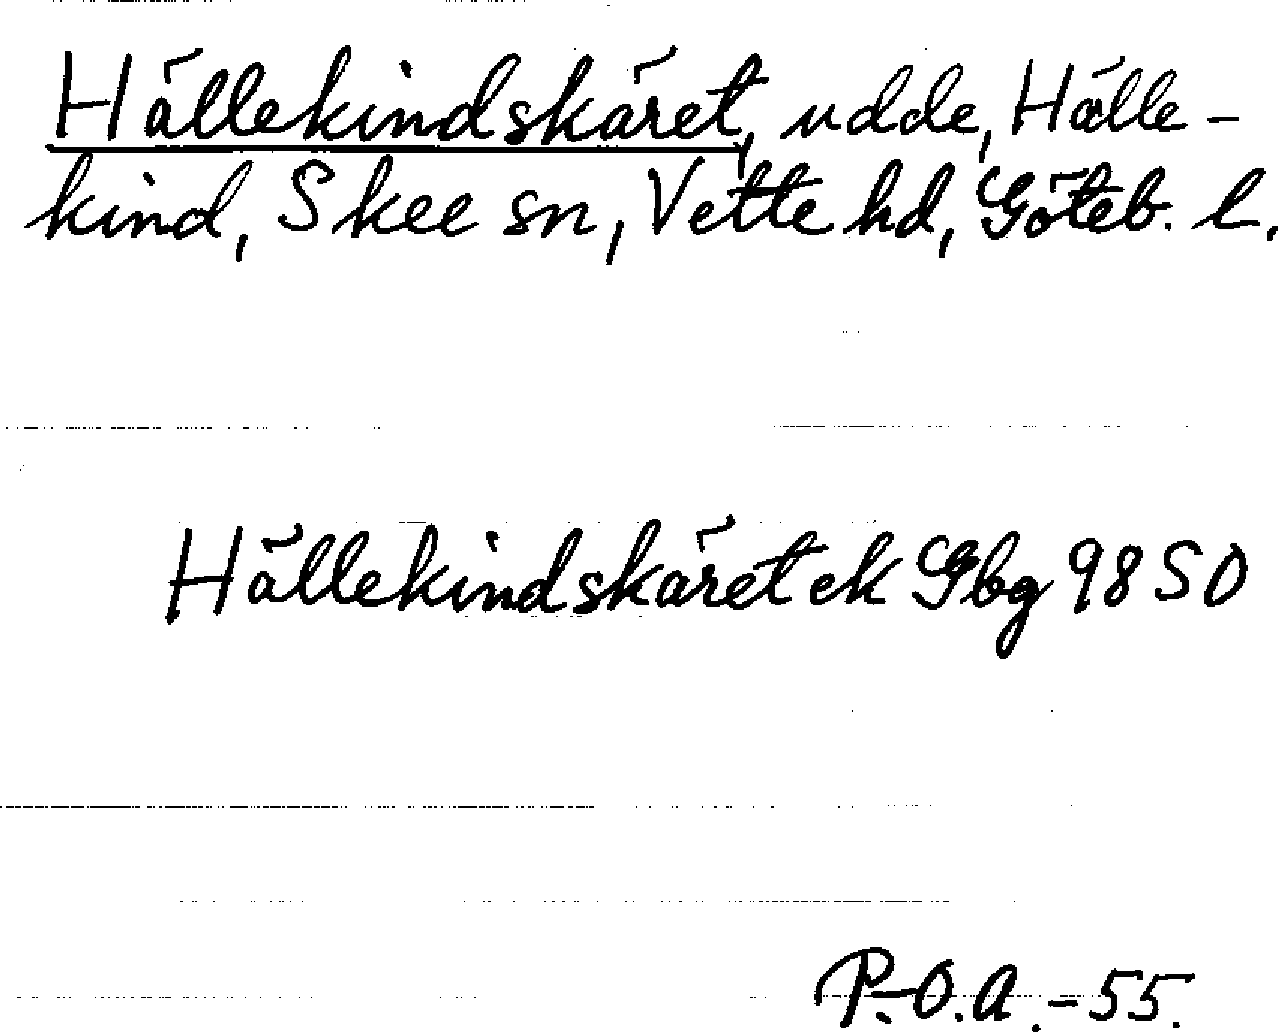 Hällekindskäret, udde, Hälle-
kind, Skee sn, Vette hd, Göteb. l.
Hällekindskäret ek Gbg 9850
P.-O.A.-55.